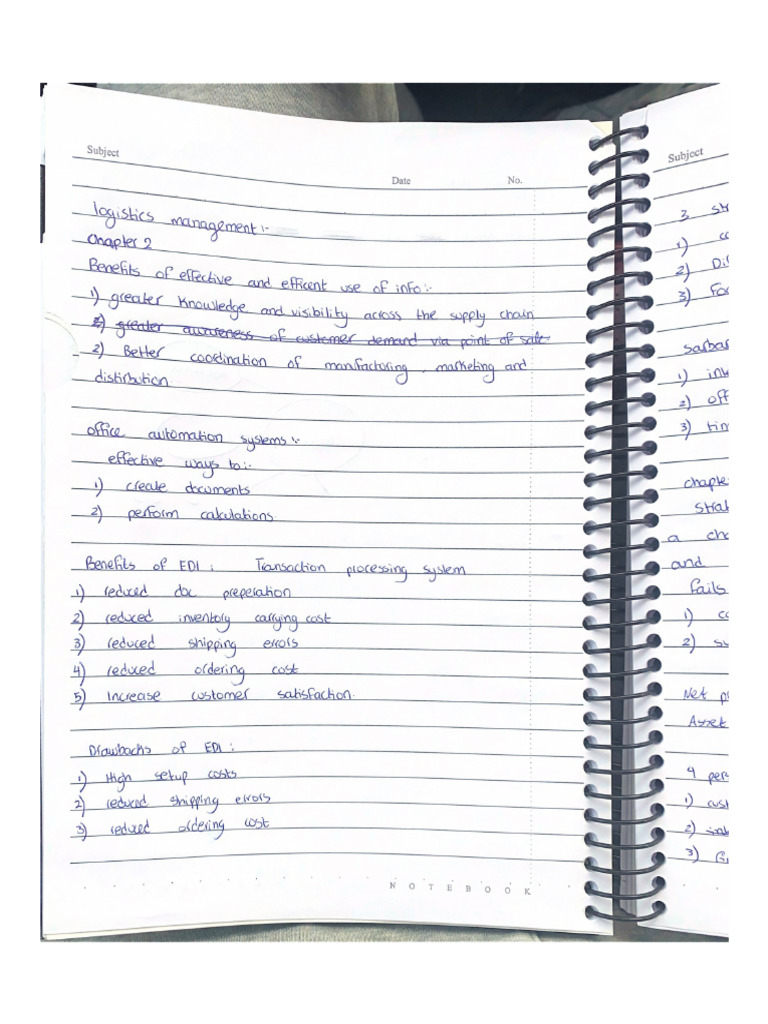 Subject
Date No.
logistics management :-
Chapter 2
Benefits of effective and efficent use of info :-
1) greater knowledge and visibility across the supply chain
2) greater awareness of customer demand via point of sale
2) Better coordination of manufactoring, marketing and
distirbution.
office automation systems :-
effective ways to :-
1) create documents
2) perform calculations.
Benefits of EDI : Transaction processing system
1) reduced doc preperation
2) reduced inventory carrying cost
3) reduced shipping errors
4) reduced ordering cost
5) increase customer satisfaction.
Drawbacks of EDI :
1) High setup costs
2) reduced shipping errors
3) reduced ordering cost
NOTEBOOK
Subject
3
1)
2)
3)
1)
2)
3)
a
and
fails
1)
2)
Net
Asset
4
1)
2)
3)